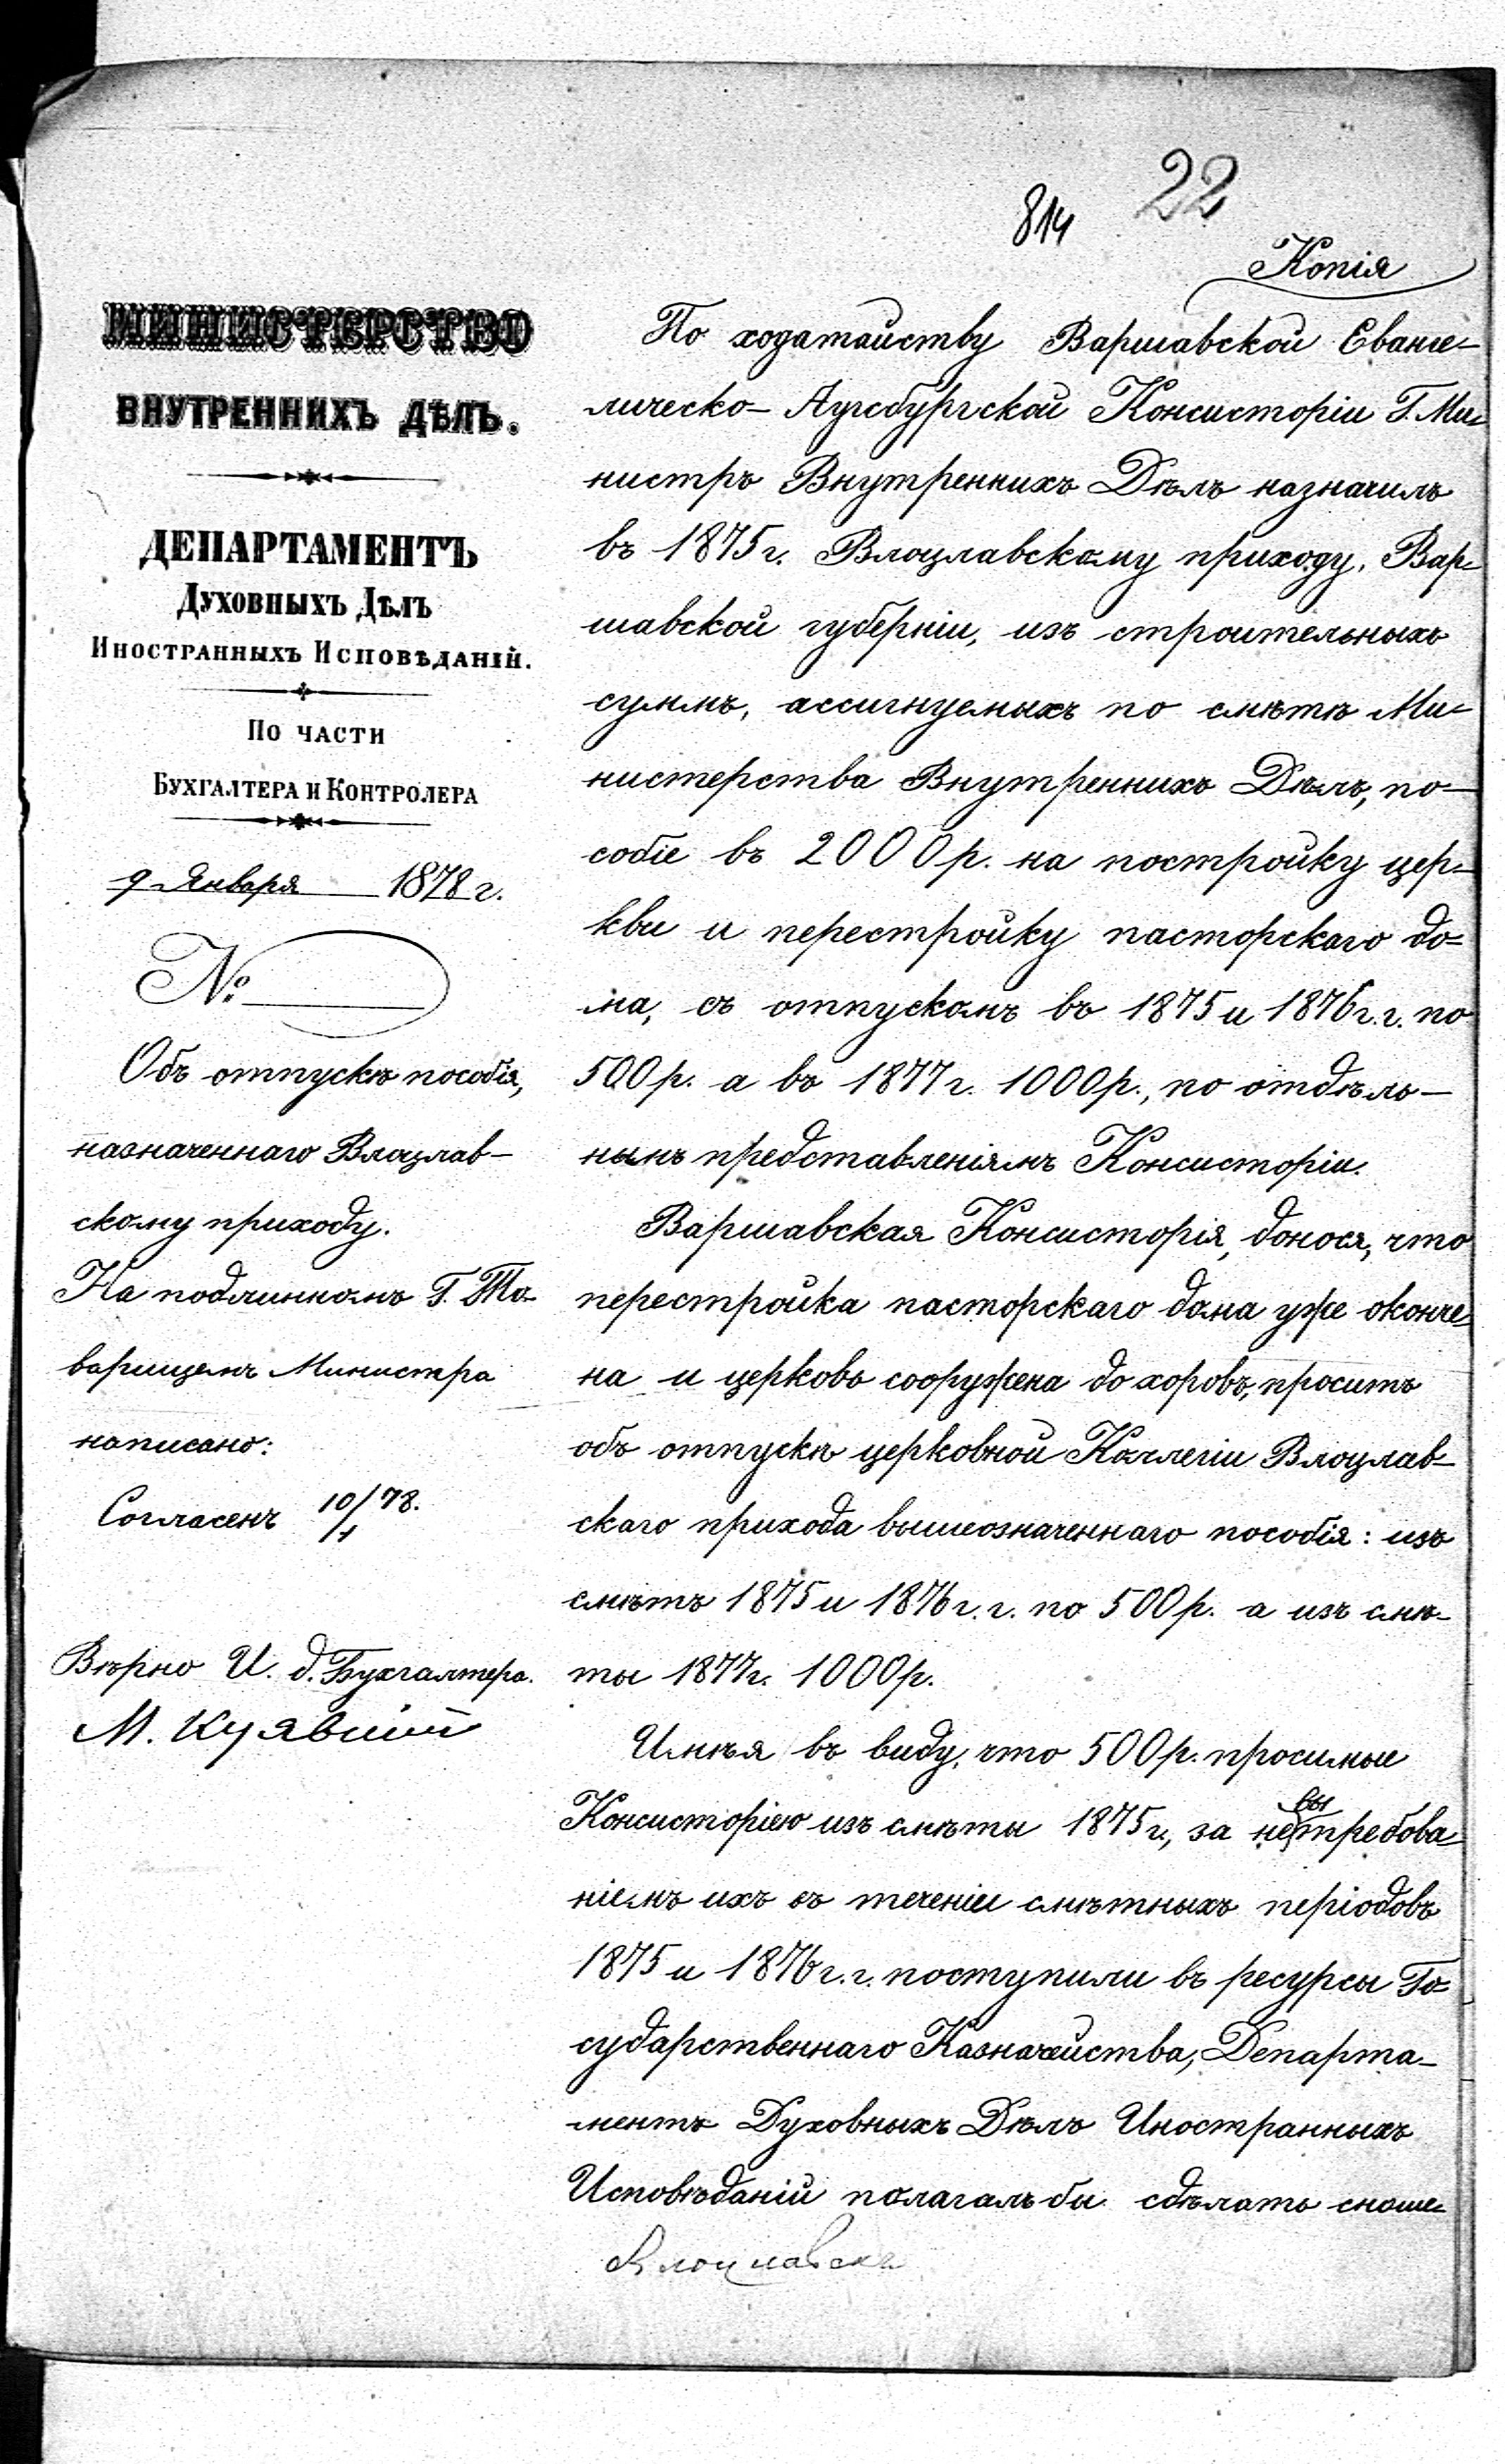 22
814
Копія
МИНИСТЕРСТВО
ВНУТРЕННИХЪ ДѢЛЪ.
ДЕПАРТАМЕНТЪ
Духовныхъ Дѣлъ
Иностранныхъ Исповѣданій.
По части
Бухгалтера и Контролера
9 Января 1878 г.
№
Объ отпускѣ пособія,
назначеннаго Влоцлав-
скому приходу.
На подлинномъ Г. То-
варищемъ Министра
написано:
Согласенъ 10/1 78.
Вѣрно И. д. Бухгалтера.
М.
По ходатайству Варшавской Еванге-
лическо-Аугсбургской Консисторіи Г. Ми-
нистръ Внутреннихъ Дѣлъ назначилъ
въ 1875 г. Влоцлавскому приходу, Вар-
шавской губерніи, изъ строительныхъ
суммъ, ассигнуемыхъ по смѣтѣ Ми-
нистерства Внутреннихъ Дѣлъ, по-
собіе въ 2000 р. на постройку цер-
кви и перестройку пасторскаго до-
ма, съ отпускомъ въ 1875 и 1876 г.г. по
500 р. а въ 1877 г. 1000 р., по отдѣль-
нымъ представленіямъ Консисторіи.
Варшавская Консисторія, донося, что
перестройка пасторскаго дома уже оконче-
на и церковь сооружена до хоровъ, проситъ
объ отпускѣ церковной Коллегіи Влоцлав-
скаго прихода вышеозначеннаго пособія: изъ
смѣтъ 1875 и 1876 г.г. по 500 р. а изъ смѣ-
ты 1877 г. 1000 р.
Имѣя въ виду, что 500 р. просимые
Консисторіею изъ смѣты 1875 г., за невытребова-
ніемъ ихъ въ теченіи смѣтныхъ періодовъ
1875 и 1876 г.г. поступили въ ресурсы Го-
сударственнаго Казначейства, Департа-
ментъ Духовныхъ Дѣлъ Иностранныхъ
Исповѣданій полагалъ бы сдѣлать сноше-
Влоцлавскъ